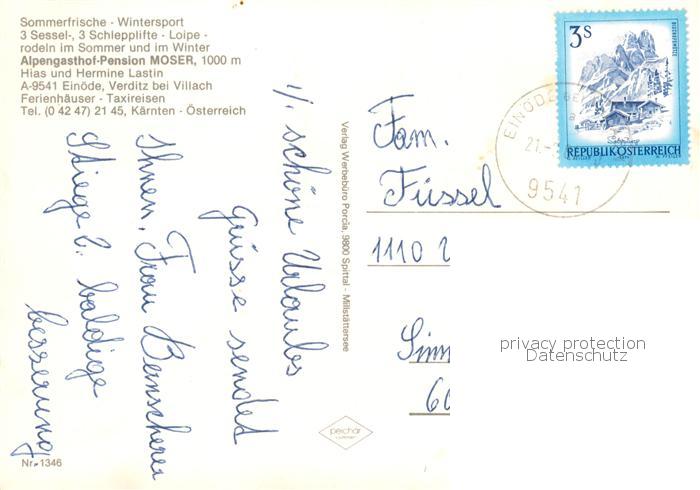 Sommerfrische - Wintersport
3 Sessel-, 3 Schlepplifte - Loipe -
rodeln im Sommer und im Winter
Alpengasthof-Pension MOSER, 1000 m
Hias und Hermine Lastin
A-9541 Einöde, Verditz bei Villach
Ferienhäuser - Taxireisen
Tel. (0 42 47) 21 45, Kärnten - Österreich
schöne Urlaubs
Grüsse sendet
Ihnen. Frau
Stiege 2. baldige
besserung
Nr. 1346
Verlag Werbebüro Porcia, 9800 Spittal - Millstättersee
peichär
Fam.
Füssel
1110
Simm
60
3 S
BISCHOFSMÜTZE
REPUBLIK ÖSTERREICH
EINÖDE
21.
9541
privacy protection
Datenschutz